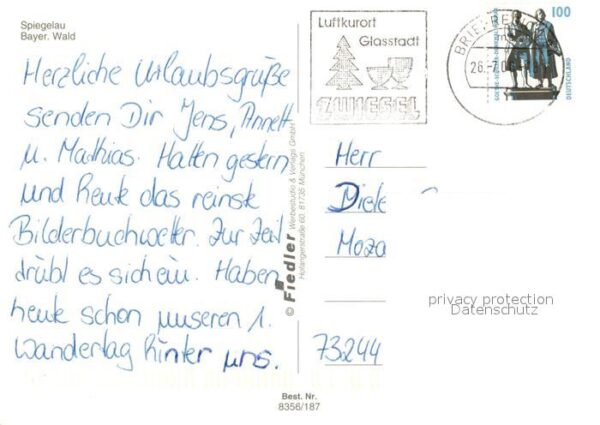 Spiegelau
Bayer. Wald
Herzliche Urlaubsgrüße
senden Dir Jens, Annett
u. Mathias. Hatten gestern
und heute das reinste
Bilderbuchwetter. Zur Zeit
trübt es sich ein. Haben
heute schon unseren 1.
Wandertag hinter uns.
Luftkurort
Glasstadt
ZWIESEL
BRIEFREGION
26.-7.0
100
DEUTSCHLAND
© Fiedler Werbestudio & Verlags GmbH
Hofangerstraße 60, 81735 München
Herr
Diete
Moza
73244
privacy protection
Datenschutz
Best. Nr.
8356/187